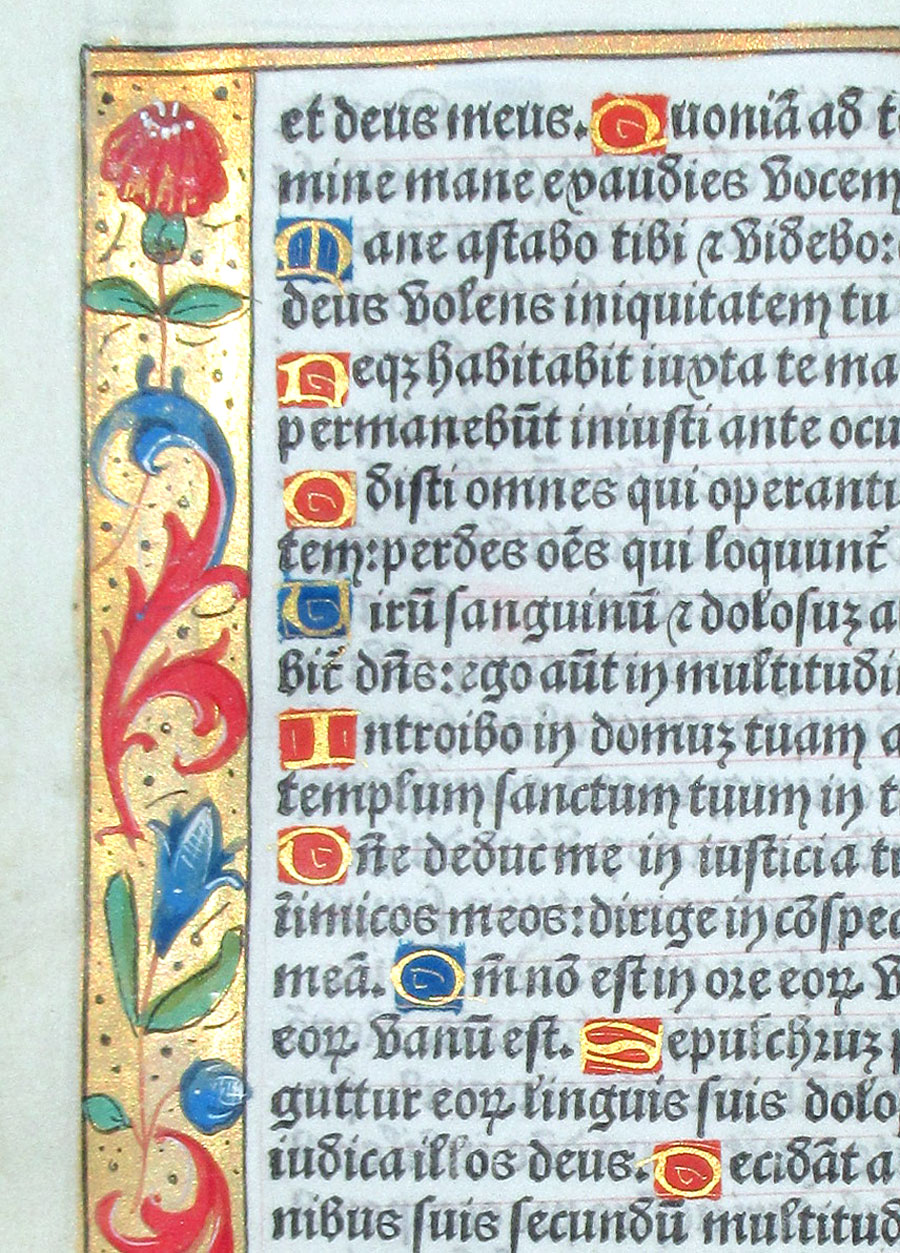 et deus meus. Quoniã ad t
mine mane exaudies vocem
Mane astabo tibi ⁊ videbo:
deus volens iniquitatem tu
Neqꝫ habitabit iuxta te ma
permanebūt iniusti ante ocu
Odisti omnes qui operanti
tem: perdes oēs qui loquunt̄
Uirū sanguinū ⁊ dolosuꝫ a
bit̄ dñs: ego aūt in multitudi
Introibo in domuꝫ tuam a
templum sanctum tuum in t
Dñe deduc me in iusticia tu
imicos meos: dirige in cōspec
meã. Qm̄ nō est in ore eoꝝ v
eoꝝ vanū est. Sepulchruꝫ p
guttur eoꝝ linguis suis dolo
iudica illos deus. Decidãt a
nibus suis secundū multitud